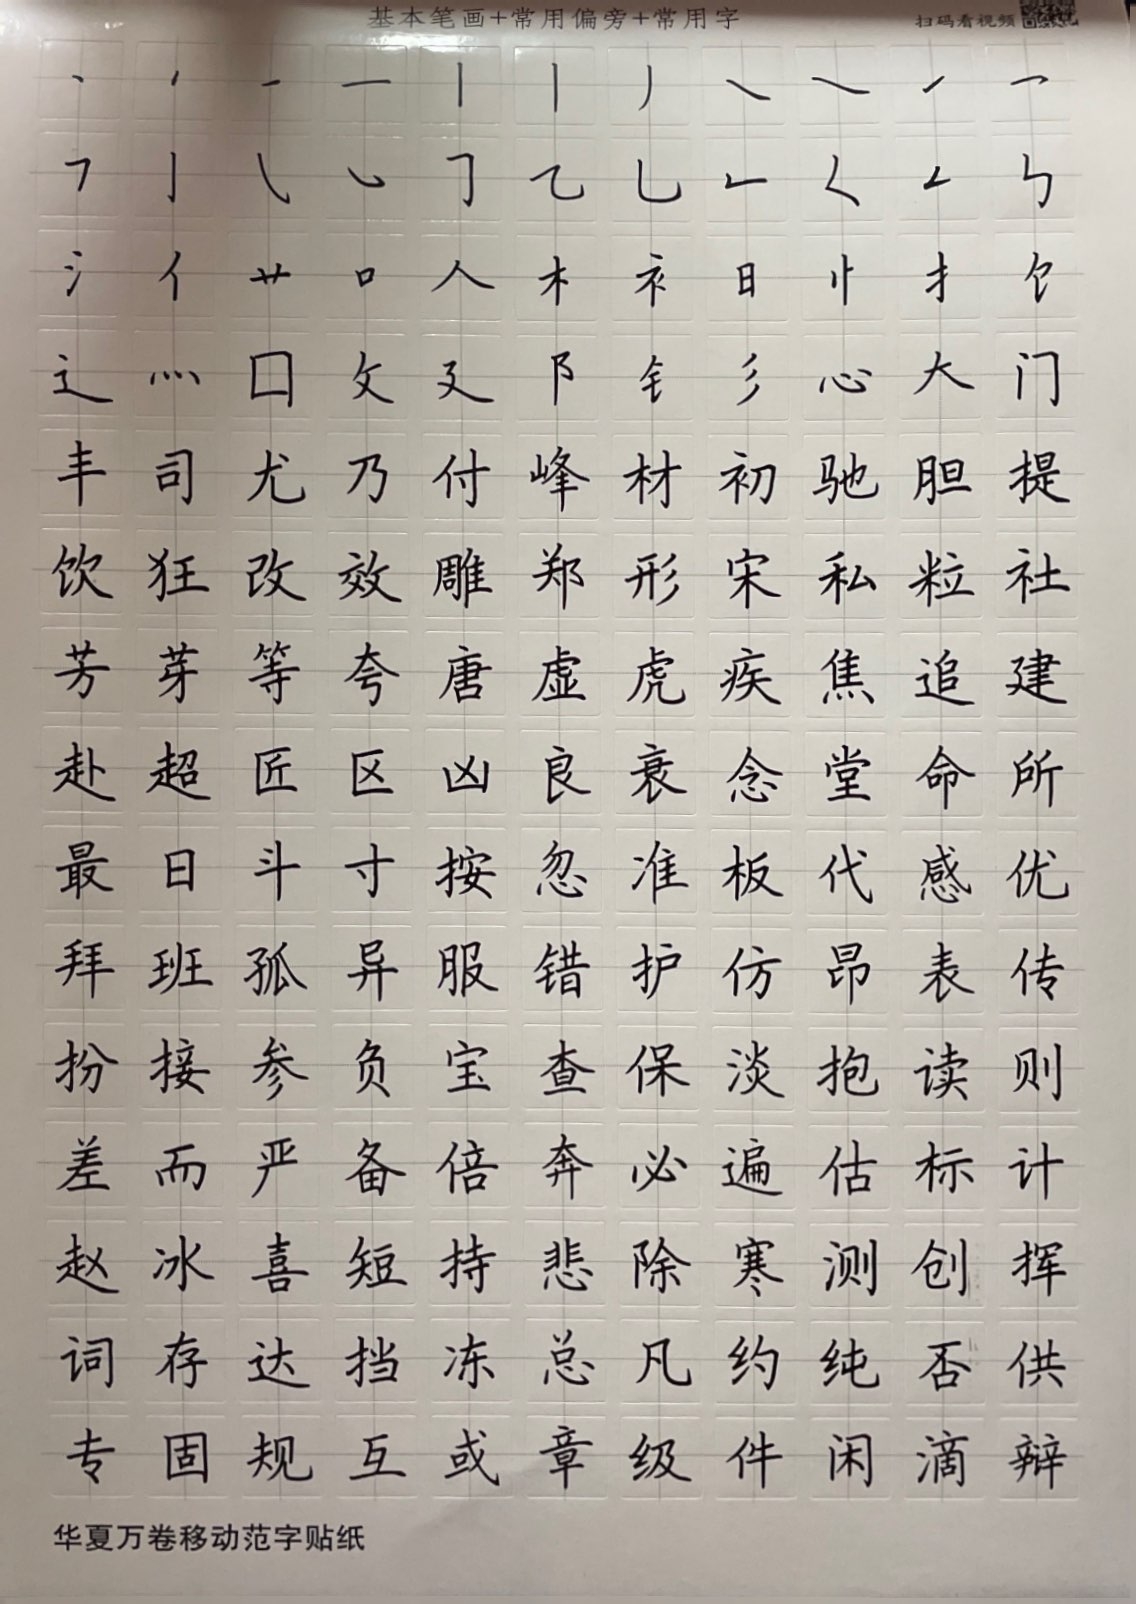 基本笔画+常用偏旁+常用字
扫码看视频
丶 丿 一 一 丨 丨 丿 ㇏ ㇏ ㇀ 乛
㇕ 亅 ㇂ ㇃ ㇆ 乙 乚 ㇗ ㄑ ㇜ ㄣ
氵 亻 艹 口 人 木 衤 日 忄 扌 饣
辶 灬 囗 攵 廴 阝 钅 彡 心 大 门
丰 司 尤 乃 付 峰 材 初 驰 胆 提
饮 狂 改 效 雕 郑 形 宋 私 粒 社
芳 芽 等 夸 唐 虚 虎 疾 焦 追 建
赴 超 匠 区 凶 良 衰 念 堂 命 所
最 日 斗 寸 按 忽 准 板 代 感 优
拜 班 孤 异 服 错 护 仿 昂 表 传
扮 接 参 负 宝 查 保 淡 抱 读 则
差 而 严 备 倍 奔 必 遍 估 标 计
赵 冰 喜 短 持 悲 除 寒 测 创 挥
词 存 达 挡 冻 总 凡 约 纯 否 供
专 固 规 互 或 章 级 件 闲 滴 辩
华夏万卷移动范字贴纸